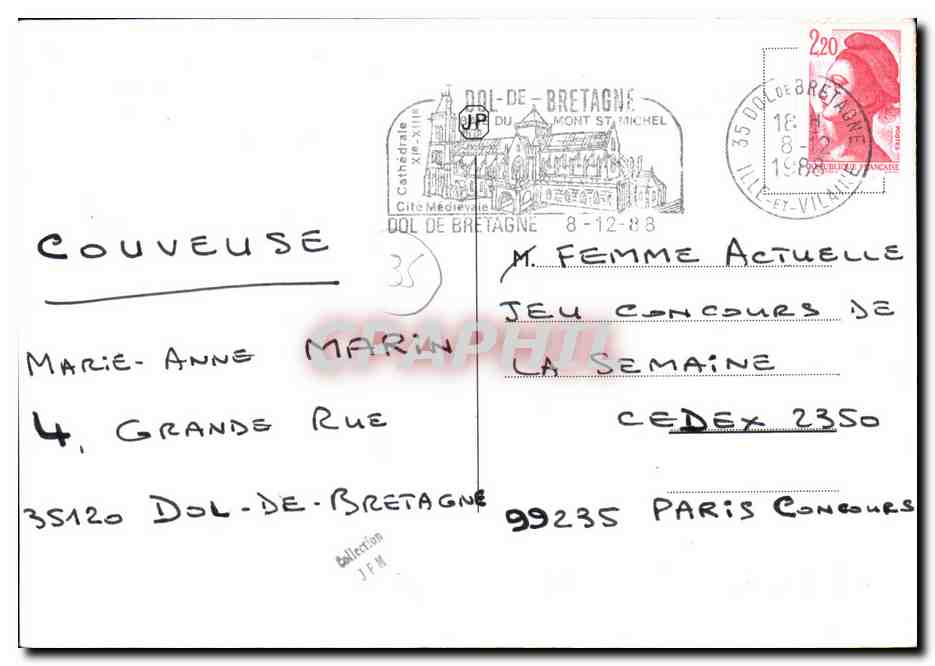 2,20
RÉPUBLIQUE FRANÇAISE
35 DOL DE BRETAGNE
18 H
8-12
1988
ILLE-ET-VILAINE
DOL-DE-BRETAGNE
DU MONT ST MICHEL
JP
Cathédrale
XIe-XIIIe
Cité Médiévale
DOL DE BRETAGNE 8-12-88
COUVEUSE
35
MARIE-ANNE MARIN
4, GRANDE RUE
35120 DOL-DE-BRETAGNE
Collection
JFM
M. FEMME ACTUELLE
JEU CONCOURS DE
LA SEMAINE
CEDEX 2350
99235 PARIS CONCOURS
CPAPHIL